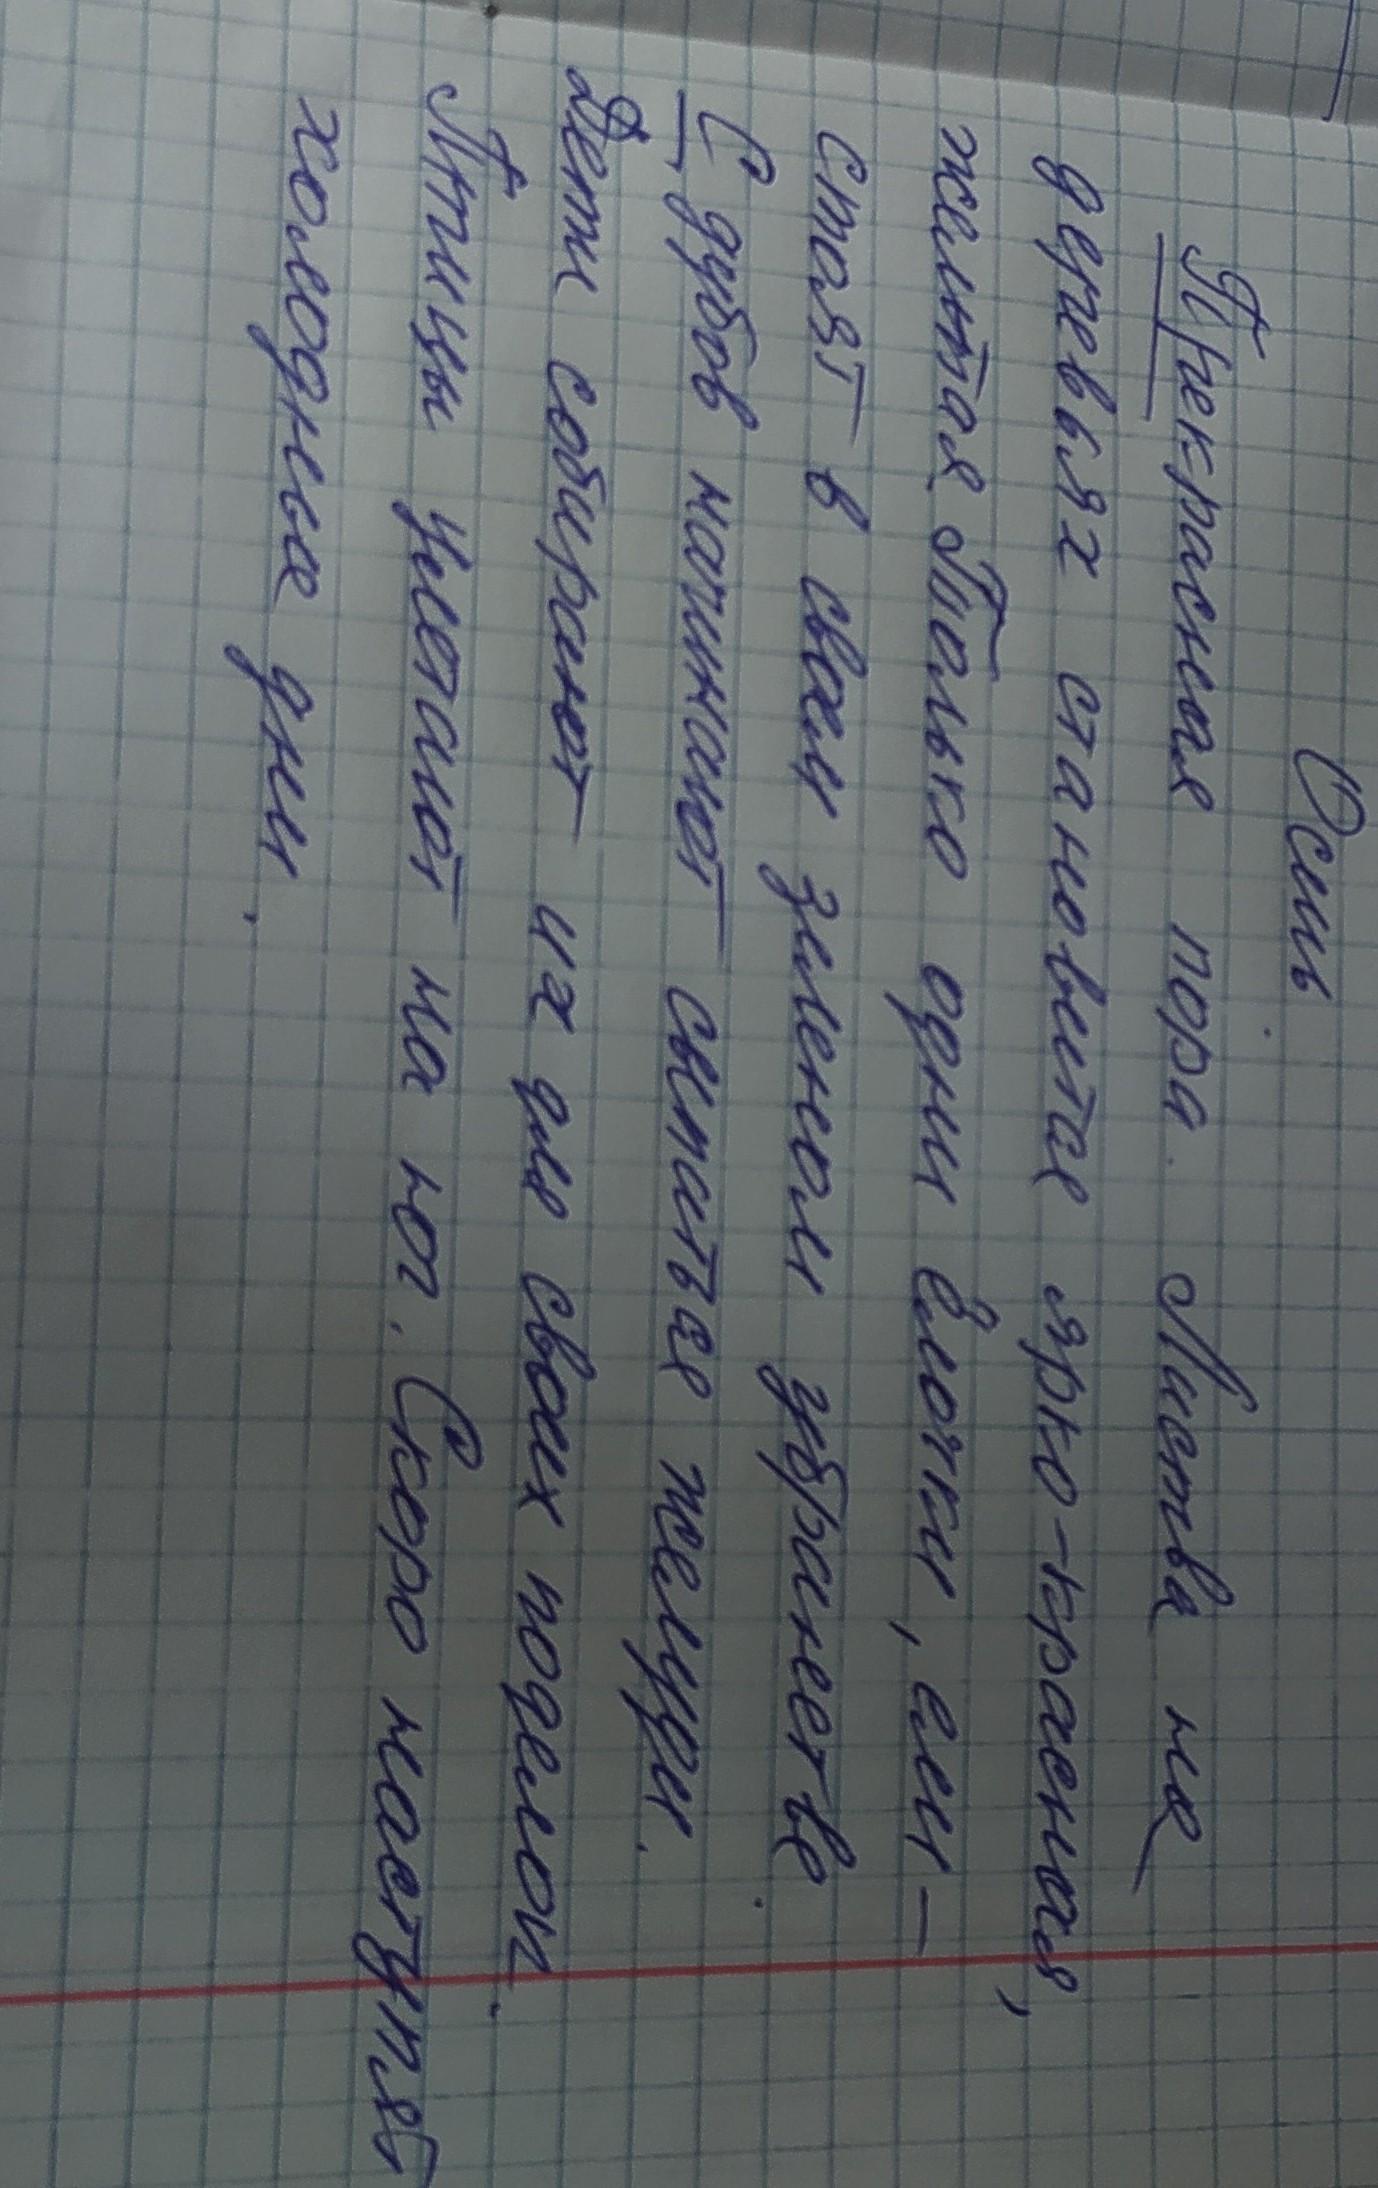 Осень
Прекрасная пора. Листва на
деревьях становится ярко-красная,
желтая. Только одни ёлочки, ели-
стоят в своем зеленом убранстве.
С дубов начинают сыпаться желуди.
Дети собирают их для своих поделок.
Птицы улетают на юг. Скоро наступят
холодные дни.